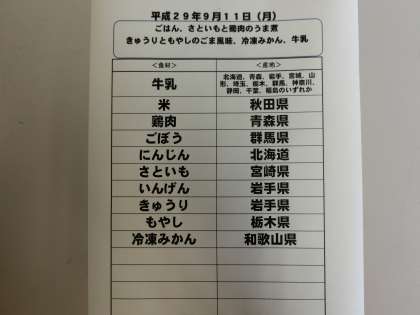 平成29年9月11日（月）
ごはん、さといもと鶏肉のうま煮
きゅうりともやしのごま風味、冷凍みかん、牛乳
＜食材＞ ＜産地＞
牛乳 北海道、青森、岩手、宮城、山
形、埼玉、栃木、群馬、神奈川、
静岡、千葉、福島のいずれか
米 秋田県
鶏肉 青森県
ごぼう 群馬県
にんじん 北海道
さといも 宮崎県
いんげん 岩手県
きゅうり 岩手県
もやし 栃木県
冷凍みかん 和歌山県